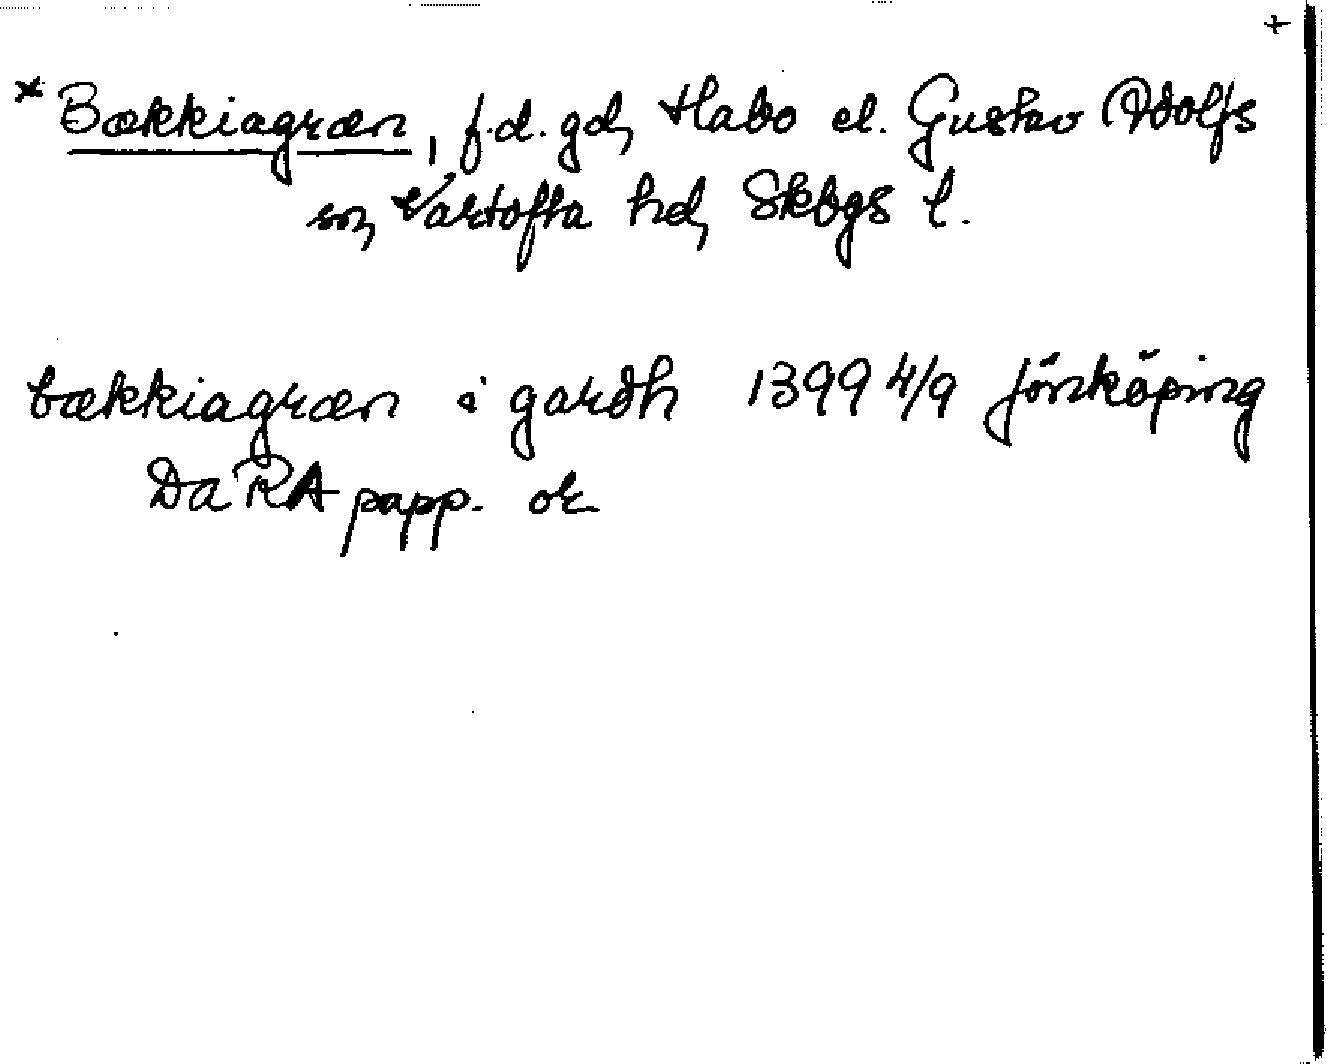 +
* Bækkiagræn, f.d. gd, Habo el. Gustav Adolfs
sn, Vartofta hd, Skbgs l.
bækkiagræn i gardh 1399 4/9 Jönköping
Da RA papp. ok